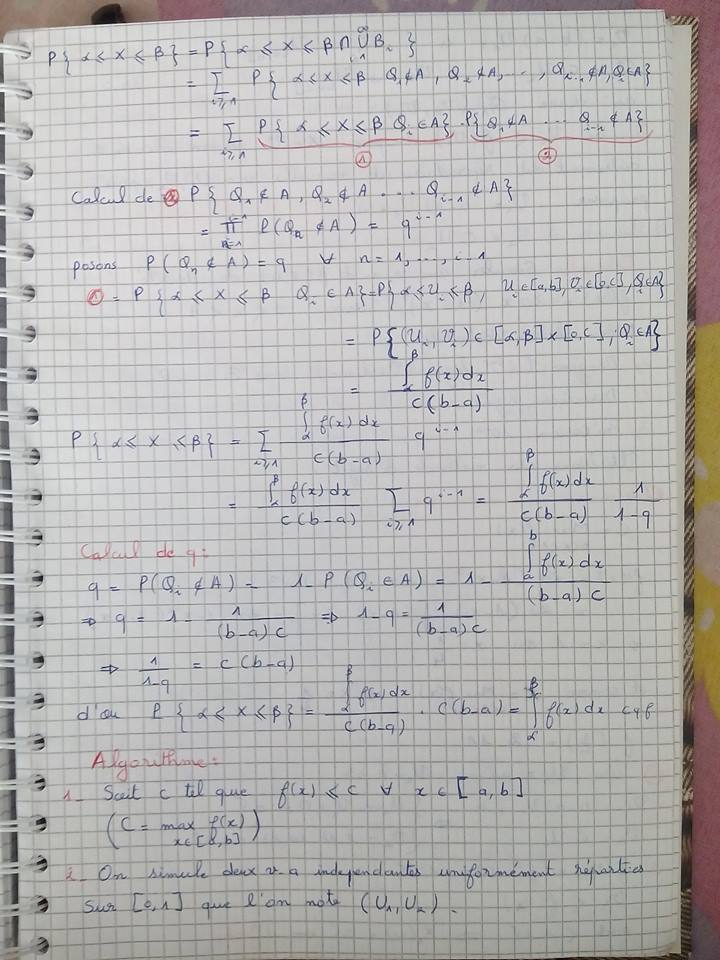 P{ α ≤ X ≤ β } = P{ α ≤ X ≤ β ∩ ∞∪i=1 Bi }
= Σ i≥1 P{ α ≤ X ≤ β Q1∉A, Q2∉A, ..., Qi-1∉A, Qi∈A}
= Σ i≥1 P{ α ≤ X ≤ β Qi∈A} · P{Q1∉A ... Qi-1∉A}
① ②
Calcul de ② P{ Q1∉A, Q2∉A ... Qi-1∉A}
= i-1∏n=1 P(Qn∉A) = q^i-1
posons P(Qn∉A) = q ∀ n=1,...,i-1
① = P{ α ≤ X ≤ β Qi∈A} = P{α ≤ Ui ≤ β, Ui∈[a,b], Vi∈[0,c], Qi∈A}
= P{(Ui, Vi) ∈ [α,β] x [0,c], Qi∈A}
= ∫αβ f(x)dx / c(b-a)
P{ α ≤ X ≤ β } = Σ i≥1 ∫αβ f(x)dx / c(b-a) q^i-1
= ∫αβ f(x)dx / c(b-a) Σ i≥1 q^i-1 = ∫αβ f(x)dx / c(b-a) 1/1-q
Calcul de q:
q = P(Qi∉A) = 1- P(Qi∈A) = 1- ∫ab f(x)dx / (b-a)c
⇒ q = 1- 1/(b-a)c ⇒ 1-q = 1/(b-a)c
⇒ 1/1-q = c(b-a)
d'où P{ α ≤ X ≤ β } = ∫αβ f(x)dx / c(b-a) · c(b-a) = ∫αβ f(x)dx cqf
Algorithme:
1_ Soit c tel que f(x) ≤ c ∀ x ∈ [a,b]
(C = max f(x) x∈[a,b])
2_ On simule deux v-a independantes uniformément réparties
sur [0,1] que l'on note (U1,U2).